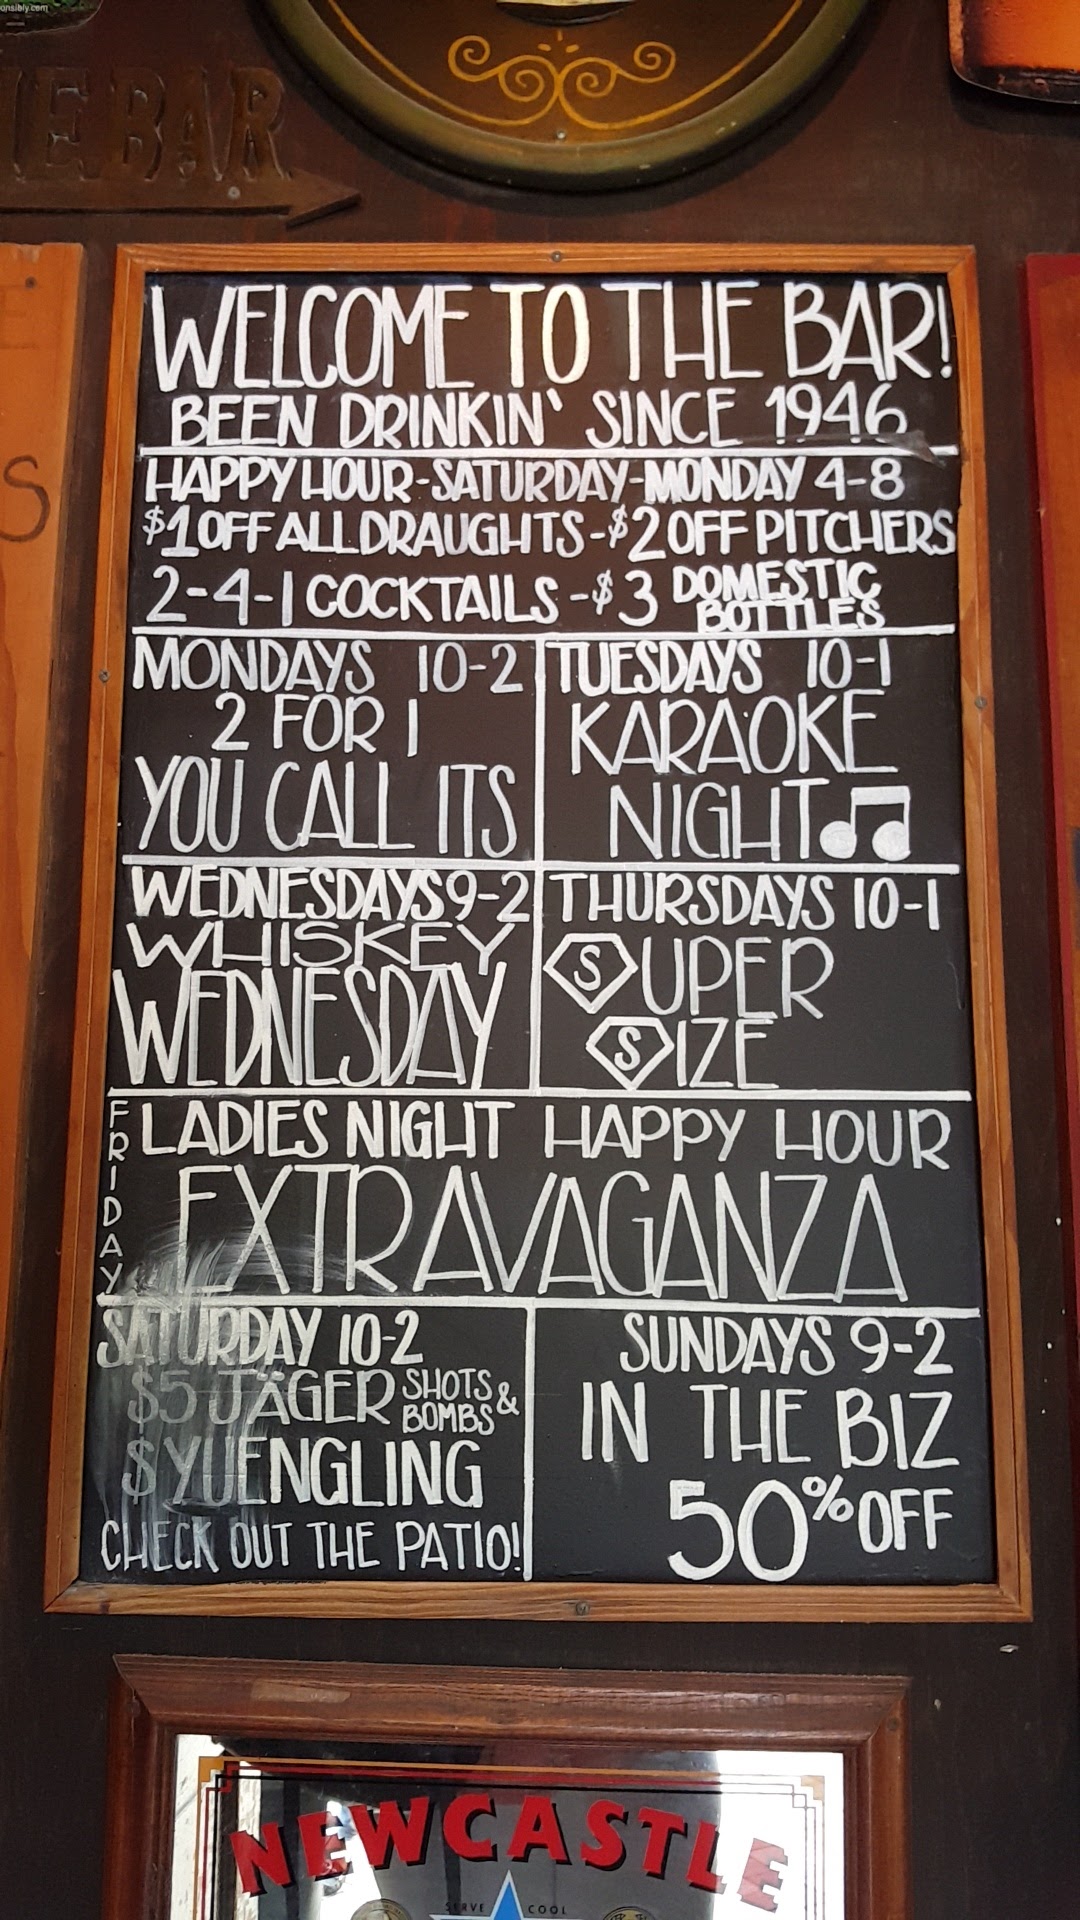 onsibly.com
E BAR
S
WELCOME TO THE BAR!
BEEN DRINKIN' SINCE 1946
HAPPY HOUR-SATURDAY-MONDAY 4-8
$1 OFF ALL DRAUGHTS-$2 OFF PITCHERS
2-4-1 COCKTAILS -$3 DOMESTIC
BOTTLES
MONDAYS 10-2
2 FOR 1
YOU CALL ITS
TUESDAYS 10-1
KARAOKE
NIGHT
WEDNESDAYS 9-2
WHISKEY
WEDNESDAY
THURSDAYS 10-1
SUPER
SIZE
FRIDAY
LADIES NIGHT HAPPY HOUR
EXTRAVAGANZA
SATURDAY 10-2
$5 JÄGER SHOTS &
BOMBS
$ YUENGLING
CHECK OUT THE PATIO!
SUNDAYS 9-2
IN THE BIZ
50% OFF
NEWCASTLE
SERVE COOL